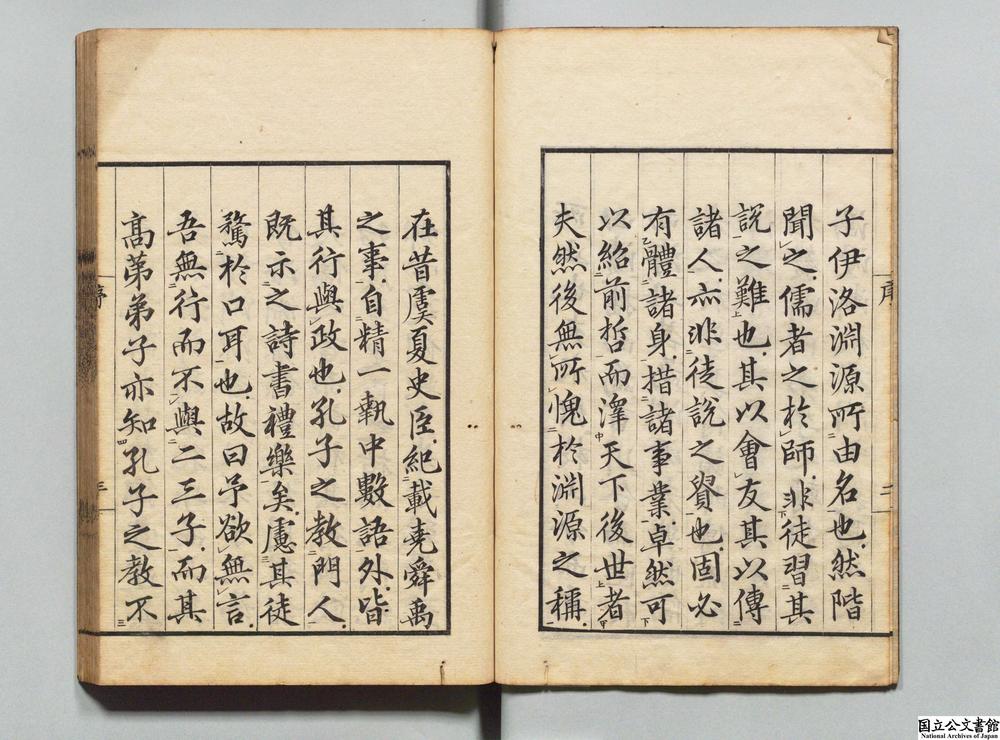 子伊洛淵源所由名也然階
聞之儒者之於師非徒習其
說之難也其以會友其以傳
諸人亦非徒說之貲也固必
有體諸身措諸事業卓然可
以紹前哲而澤天下後世者
夫然後無所愧於淵源之稱
序
二
在昔虞夏史臣紀載堯舜禹
之事自精一執中數語外皆
其行與政也孔子之教門人
既示之詩書禮樂矣慮其徒
騖於口耳也故曰予欲無言
吾無行而不與二三子而其
高弟弟子亦知孔子之教不
序
三
国立公文書館
National Archives of Japan